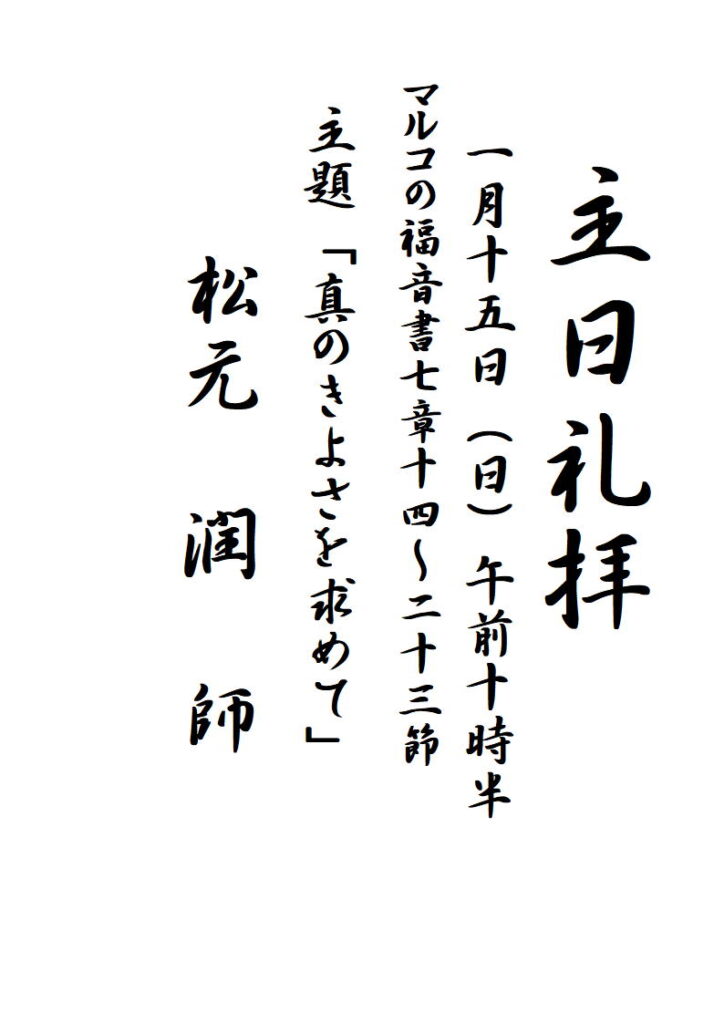 主日礼拝
一月十五日（日）午前十時半
マルコの福音書七章十四～二十三節
主題「真のきよさを求めて」
松元　潤　師